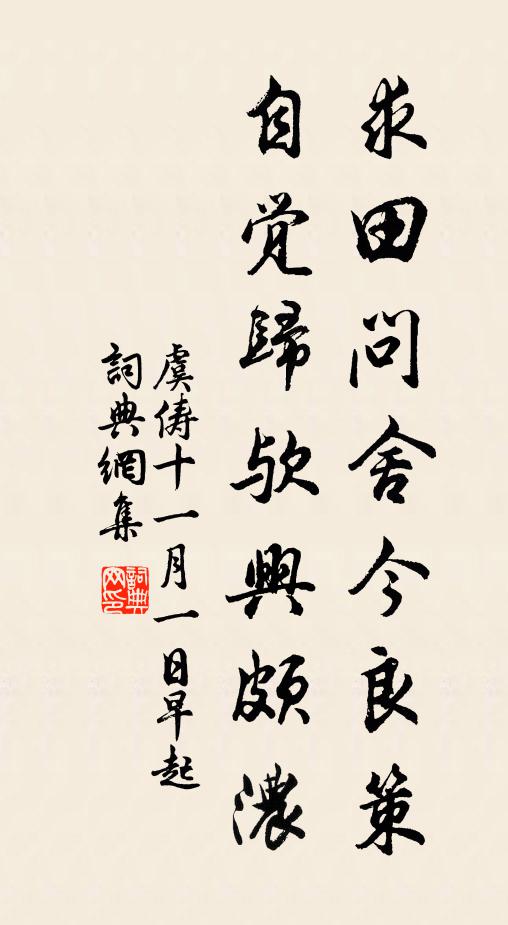 求田問舍今良策
自覚歸欤興頗濃
虞儔十一月一日早起
詞典網集
詞典网印